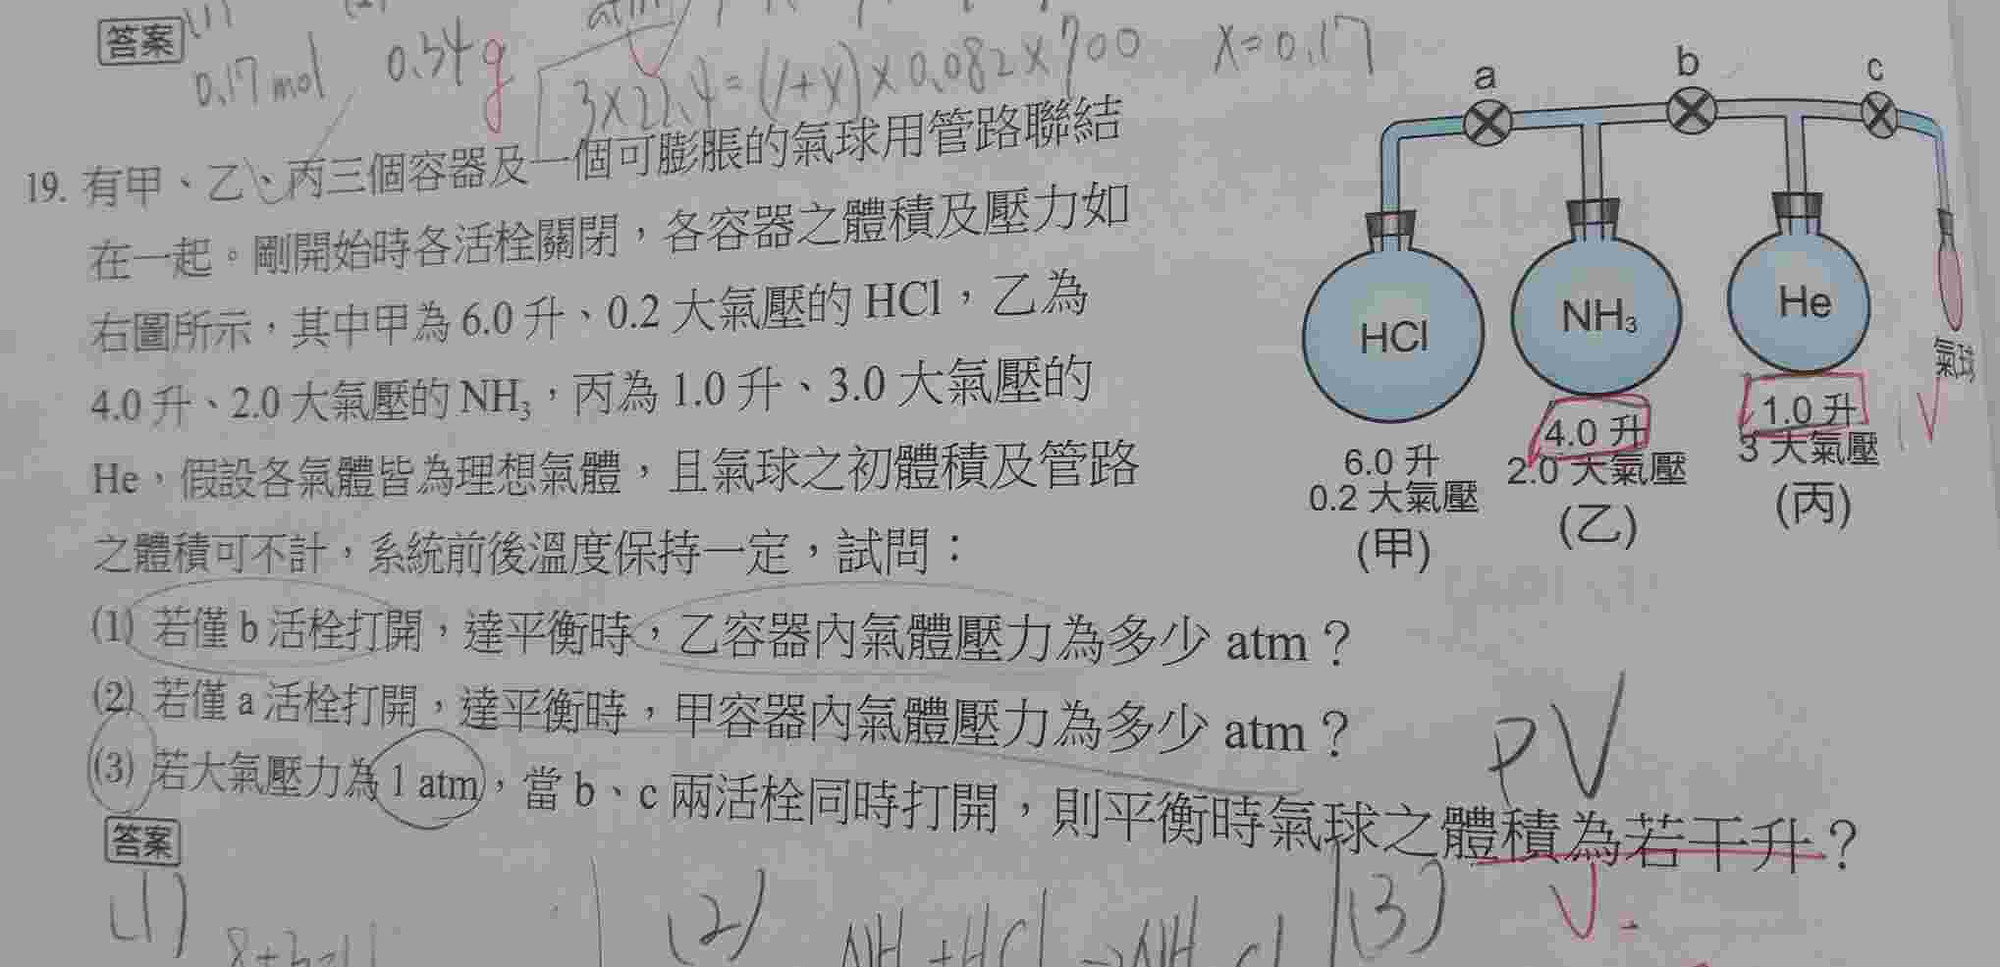 答案 (1) (2) atm
0.17mol 0.34g 3×22.4=(1+X)×0.082×700 X=0.17
19. 有甲、乙、丙三個容器及一個可膨脹的氣球用管路聯結
在一起。剛開始時各活栓關閉,各容器之體積及壓力如
右圖所示,其中甲為 6.0 升、0.2 大氣壓的 HCl,乙為
4.0 升、2.0 大氣壓的 NH₃,丙為 1.0 升、3.0 大氣壓的
He,假設各氣體皆為理想氣體,且氣球之初體積及管路
之體積可不計,系統前後溫度保持一定,試問:
a b c
HCl NH₃ He
氣球
6.0 升 4.0 升 1.0 升
0.2 大氣壓 2.0 大氣壓 3 大氣壓
(甲) (乙) (丙)
V
(1) 若僅 b 活栓打開,達平衡時,乙容器內氣體壓力為多少 atm?
(2) 若僅 a 活栓打開,達平衡時,甲容器內氣體壓力為多少 atm?
(3) 若大氣壓力為 1 atm,當 b、c 兩活栓同時打開,則平衡時氣球之體積為若干升?
PV
答案
(1) (2) (3)
NH +HCl → NH Cl